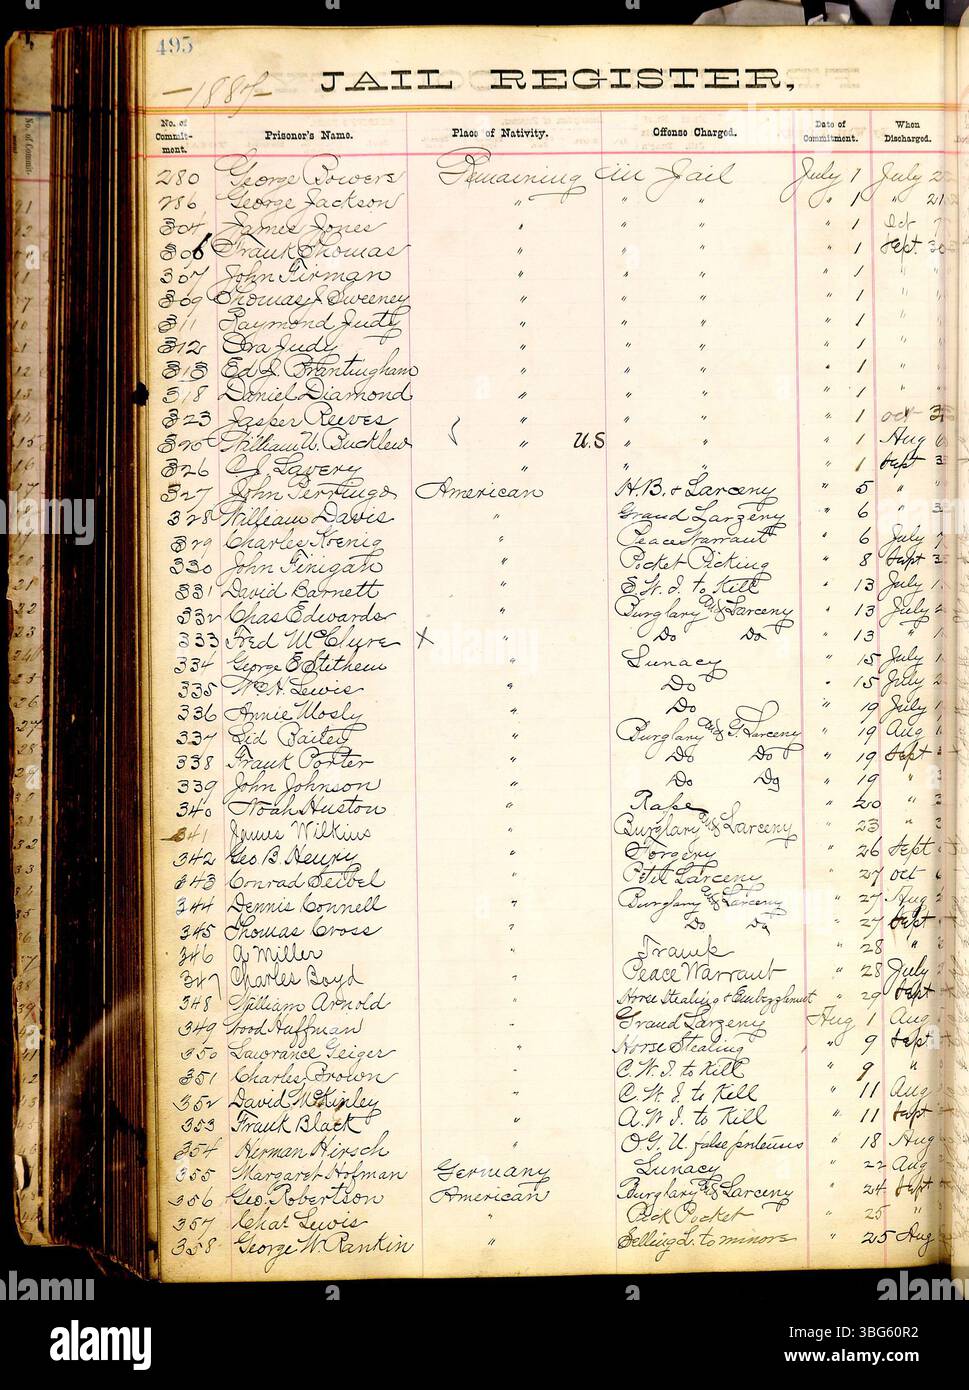 495
JAIL REGISTER,
— 188 —
No. of Commitment. Prisoner's Name. Place of Nativity. Offense Charged. Date of Commitment. When Discharged.
280 George Bowers Remaining in Jail July 1 July
286 George Jackson " " " " 1 " 21
304 James Jones " " " " 1 Oct
306 Frank Thomas " " " " 1 Sept 30
307 John Firman " " " " 1 " "
309 Thomas J Sweeney " " " " 1 " "
311 Raymond Judy " " " " 1 " "
312 Ora Judy " " " " 1 " "
313 Ed J. Brantingham " " " " 1 " "
318 Daniel Diamond " " " " 1 " "
323 Jasper Reeves " " " " 1 oct
325 William U. Bucklew " U.S " " " 1 Aug 6
326 C J. Lavery " " " " 1 Sept
327 John Perrings American H.B. & Larceny " 5 "
328 William Davis " Grand Larzeny " 6 "
329 Charles Koenig " Peace Warraut " 6 July
330 John Finigan " Pocket Picking " 8 Sept
331 David Barnett " to Kill " 13 July
332 Chas Edwards " Burglary & Larceny " 13 July
333 Fred McClure x " Do Do " 13 "
334 George E Stithem " Lunacy " 15 July
335 Wm H. Lewis " Do " 15 July
336 Annie Mosly " Do " 19 July
337 Sid Bailey " Burglary & G. Larceny " 19 Aug
338 Frank Porter " Do Do " 19 Sept
339 John Johnson " Do Do " 19 "
340 Noah Huston " Rape " 20 "
341 James Wilkins " Burglary & Larceny " 23 "
342 Geo B. Henry " Forgery " 26 Sept
343 Conrad Seibel " Petit Larceny " 27 oct
344 Dennis Connell " Burglary & Larceny " 27 Aug
345 Thomas Cross " Do Do " 27 Sept
346 A Miller " " 28 "
347 Charles Boyd " Peace Warraut " 28 July
348 William Arnold " Horse Stealing & " 29 Sept
349 Wood Huffman " Grand Larzeny Aug 1 Aug
350 Lawrance Geiger " Horse Stealing " 9 Sept
351 Charles Brown " C. W. I. to Kill " 9 "
352 David McKinley " C. W. I. to Kill " 11 Aug
353 Frank Black " A. W. I. to Kill " 11 Sept
354 Herman Hirsch " O. G. U. false pretenses " 18 Aug
355 Margaret Hofman Germany Lunacy " 22 Aug
356 Geo. Robertson American Burglary & Larceny " 24 Sept
357 Chat Lewis " Pick Pocket " 25 "
358 George W. Rankin " Selling L. to minors " 25 Aug
alamy
Image ID: 3BG60R2
www.alamy.com